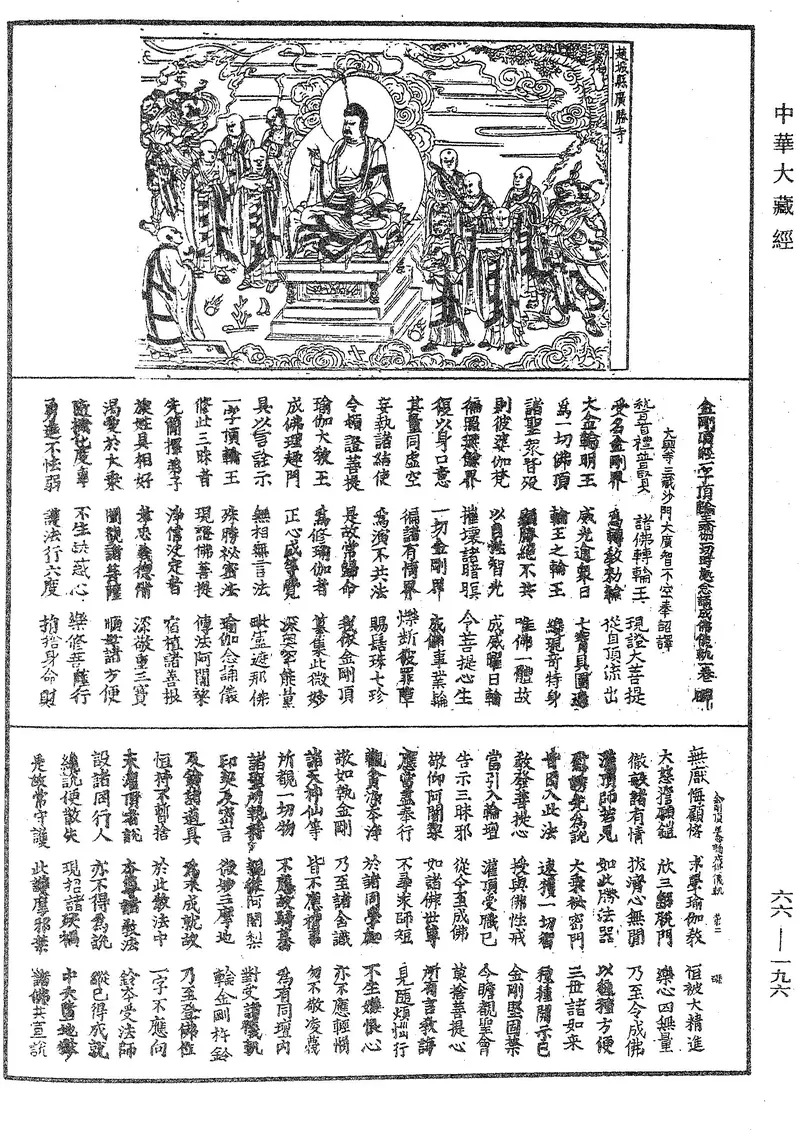 中華大藏經
趙城縣廣勝寺
金剛頂經一字頂輪王瑜伽一切時處念誦成佛儀軌一卷
大興善寺三藏沙門大廣智不空奉詔譯
稽首禮普賢 諸佛轉輪王 現證大菩提
受名金剛界 為轉教勅輪 從自頂流出
大金輪明王 威光逾衆日 七寶具圍遶
為一切佛頂 輪王之輪王 樂現奇特身
諸聖衆皆没 顯勝絕不共 唯佛一體故
則彼婆伽梵 以自性智光 成威曜日輪
徧照無餘界 摧壞諸暗暝 令菩提心生
復以身口意 一切金剛界 成佛事業輪
其量同虛空 徧諸有情界 爍斷彼罪障
妄執諸結使 為演不共法 賜髻珠七珍
令頓證菩提 是故常歸命 我依金剛頂
瑜伽大教王 為修瑜伽者 纂集此微妙
成佛理趣門 正心成等覺 深密罕能量
具以言詮示 無相無言法 毗盧遮那佛
一字頂輪王 殊勝祕密法 瑜伽念誦儀
修此三昧者 現證佛菩提 傳法阿闍梨
先簡擇弟子 淨信決定者 宿植諸善根
族姓具相好 孝忠義德備 深敬重三寶
渴愛於大乘 諸菩薩 諸方便
隨機化度事 不生缺戚心 樂修菩薩行
勇進不怯弱 護法行六度 捨身命財
無厭悔顧悋 求學瑜伽教 恒被大精進
大慈鎧 欣三解脫門 樂心四無量
儆誡諸有情 拔濟心無間 乃至令成佛
灌頂師若見 如此勝法器 以種種方便
先為說 大乘祕密門 三世諸如來
皆因入此法 速獲一切智 種種開示已
教發菩提心 授與佛性戒 金剛堅固禁
當引入輪壇 灌頂受職已 今瞻覩聖會
告示三昧耶 從今至成佛 莫捨菩提心
敬仰阿闍梨 如諸佛世尊 所有言教誨
應當盡奉行 不尋求師短 見隨煩惱行
觀 本淨 於諸同學處 不生嫌恨心
敬如執金剛 乃至諸含識 亦不應輕懱
諸天神仙等 皆不應禮 勿不敬凌懱
所覩一切物 不應故騎驀 為有同壇內
諸聖所執持 親從阿闍梨 對受諸儀軌
印契及密言 微妙三摩地 輪金剛杵鈴
及餘諸道具 為求成就故 乃至登佛位
恒持不暫捨 於此教法中 一字不應向
未灌頂者說 本尊 教法 鈴本受法師
設諸同行人 亦不得為說 縱已得成就
總說便散失 現招諸殃禍 中夭墮地獄
是故常守護 此 禁 諸佛共宣說
六六—一九六